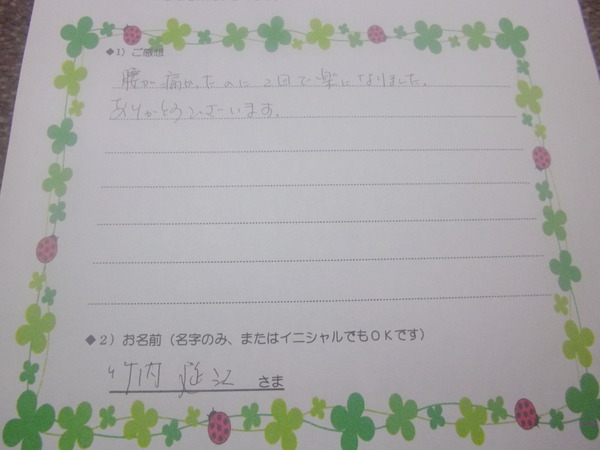 ◆1）ご感想
腰が痛かったのに2回で楽になりました。
ありがとうございます。
◆2）お名前（名字のみ、またはイニシャルでもＯＫです）
竹内 さま